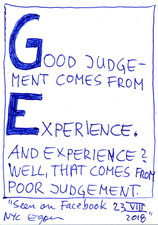 GOOD JUDGE-
MENT COMES FROM
EXPERIENCE.
AND EXPERIENCE?
WELL, THAT COMES FROM
POOR JUDGEMENT.
"Seen on Facebook 23 VIII
NYC 2018"